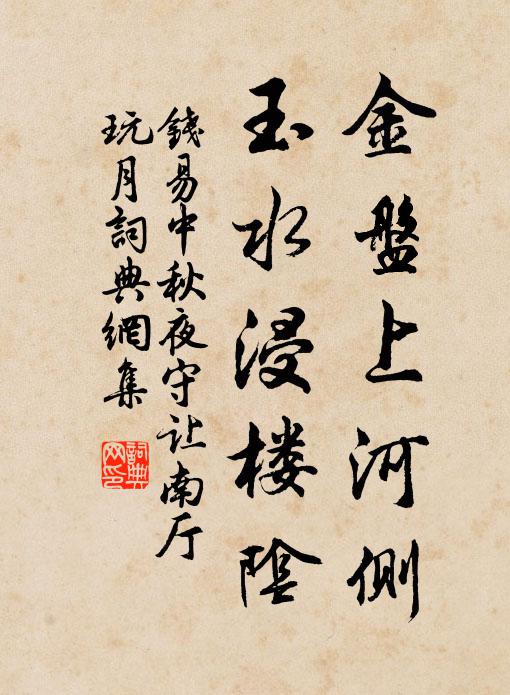 金盤上河側
玉水浸楼陰
錢易中秋夜守让南厅
玩月詞典網集
詞典网印